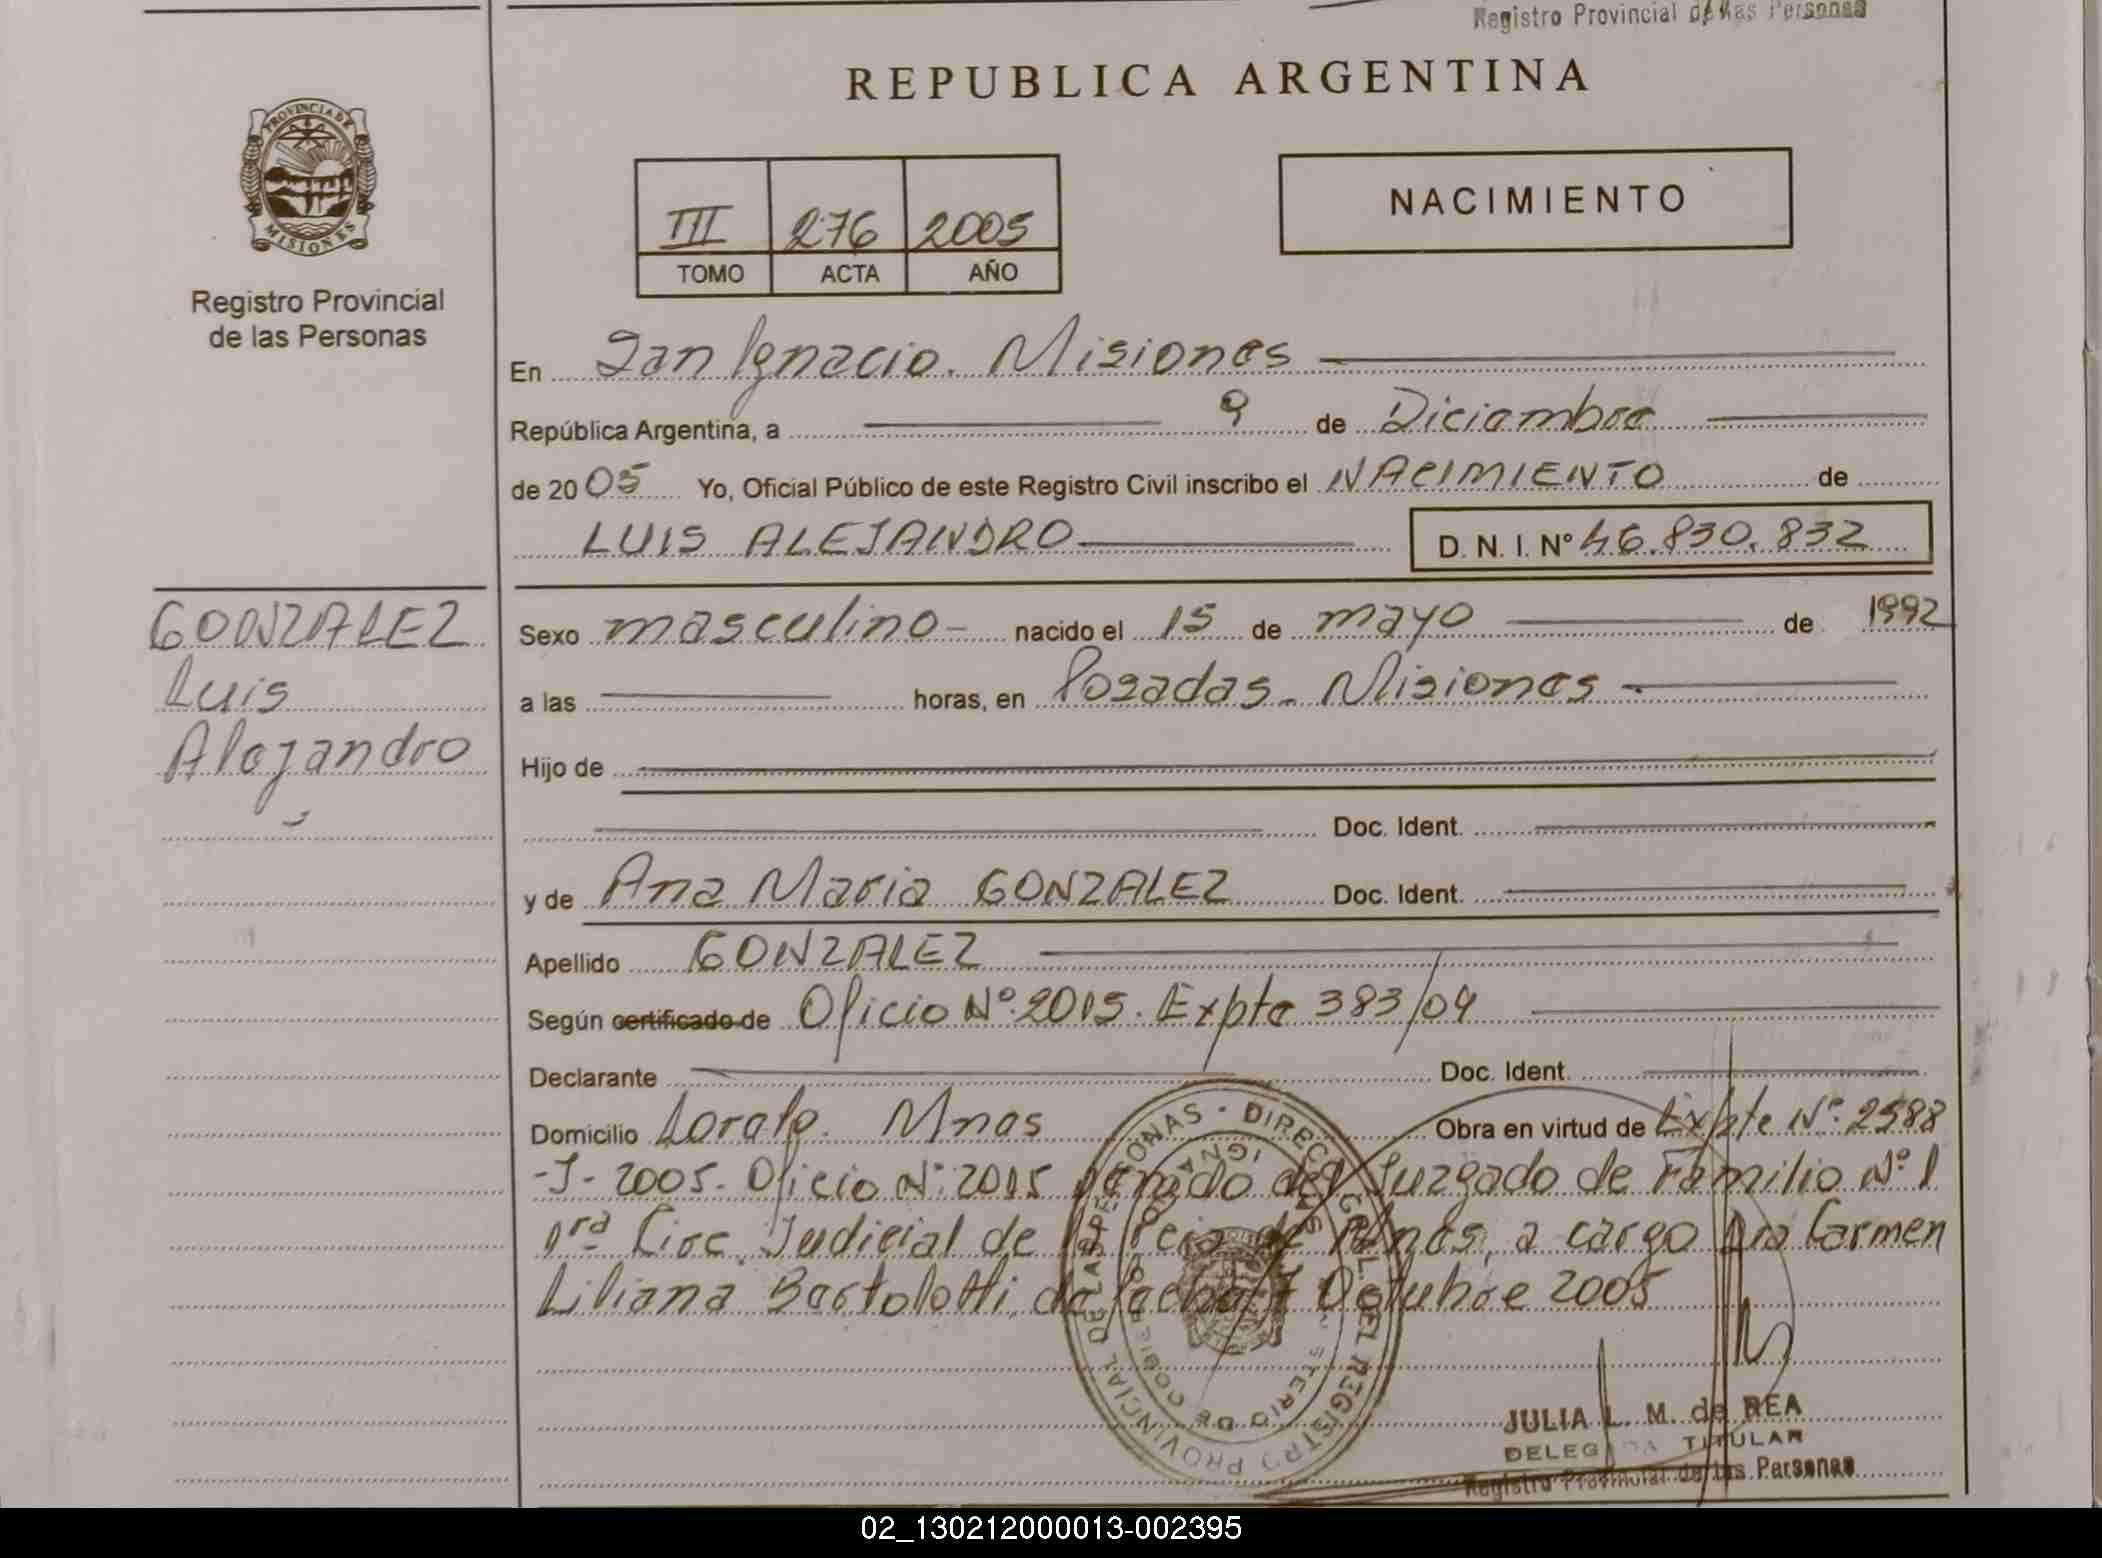 Registro Provincial de las Personas
REPUBLICA ARGENTINA
PROVINCIA DE
MISIONES
Registro Provincial
de las Personas
III 276 2005
TOMO ACTA AÑO
NACIMIENTO
En San Ignacio. Misiones
República Argentina, a 9 de Diciembre
de 2005 Yo, Oficial Público de este Registro Civil inscribo el NACIMIENTO de
LUIS ALEJANDRO D. N. I. Nº 46.830.832
GONZALEZ
Luis
Alejandro
Sexo masculino nacido el 15 de mayo de 1992
a las horas, en Posadas - Misiones
Hijo de
Doc. Ident.
y de Ana Maria GONZALEZ Doc. Ident.
Apellido GONZALEZ
Según certificado de Oficio Nº 2015. Expte 383/04
Declarante Doc. Ident.
Domicilio Loreto. Mnes Obra en virtud de Expte Nº 2588
-J- 2005. Oficio Nº 2015 del Juzgado de Familia Nº 1
1ra Circ. Judicial de la Pcia de Mnes, a cargo Dra Carmen
Liliana Bortolotti, de fecha 7 Octubre 2005
DIRECC GRAL. DEL REGISTRO PROVINCIAL DE LAS PERSONAS
MINISTERIO DE GOBIERNO
JULIA L. M. de REA
DELEGADA TITULAR
Registro Provincial de las Personas
02_130212000013-002395